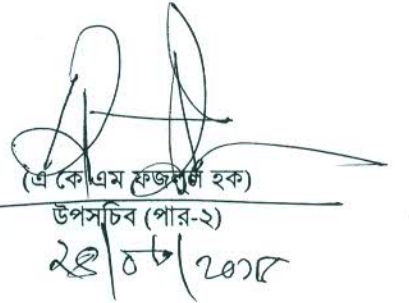 (এ কে এম ফজলুল হক)
উপসচিব (পার-২)
২৪/০৮/২০১৮